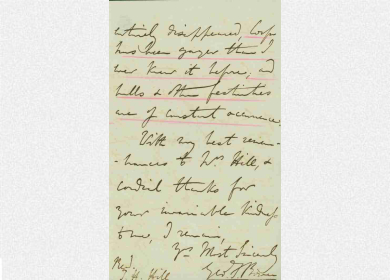 entirely disappeared, Corfu
has been gayer than I
ever knew it before, and
balls & other festivities
are of constant occurrence.
With my best remem-
-brances to Mrs. Hill, &
cordial thanks for
your invariable kindness
to me, I remain,
Yrs Most Sincerely
Geo. F. Bowen
Revd.
J. H. Hill